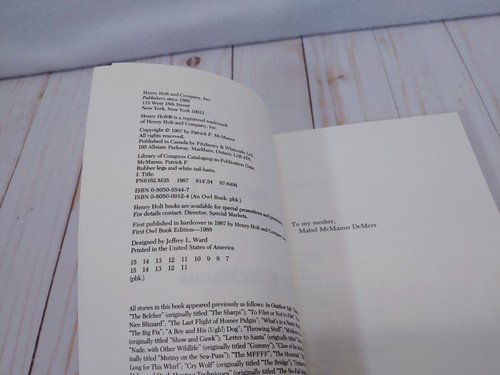 Henry Holt and Company, Inc.
Publishers since 1866
115 West 18th Street
New York, New York 10011
Henry Holt® is a registered trademark
of Henry Holt and Company, Inc.
Copyright © 1987 by Patrick F. McManus
All rights reserved.
Published in Canada by Fitzhenry & Whiteside Ltd.,
195 Allstate Parkway, Markham, Ontario L3R 4T8.
Library of Congress Cataloging-in-Publication Data
McManus, Patrick F.
Rubber legs and white tail-hairs.
I. Title.
PN6162.M35 1987 814'.54 87-8494
ISBN 0-8050-0544-7
ISBN 0-8050-0912-4 (An Owl Book: pbk.)
Henry Holt books are available for special promotions and
For details contact: Director, Special Markets.
First published in hardcover in 1987 by Henry Holt and Company,
First Owl Book Edition—1988
Designed by Jeffrey L. Ward
Printed in the United States of America
15 14 13 12 11 10 9 8 7
15 14 13 12 11
(pbk.)
All stories in this book appeared previously as follows: In Outdoor Life:
"The Belcher" (originally titled "The Sharps"); "To Filet or Not to
Nice Blizzard"; "The Last Flight of Homer Pidgin"; "What's in a Name,
"The Big Fix"; "A Boy and His (Ugh!) Dog"; "Throwing Stuff";
(originally titled "Show and Gawk"); "Letter to Santa" (originally titled
"Nude, with Other Wildlife" (originally titled "Gummy"); "Claw of the
ally titled "Mutiny on the Sea-Puss"); "The MFFFF"; "The Mountain
Long for This Whirl"; "Cry Wolf" (originally titled "The Bridge");
Duck Hunting Techniques" (originally titled "The No-Fail
To my mother,
Mabel McManus DeMers